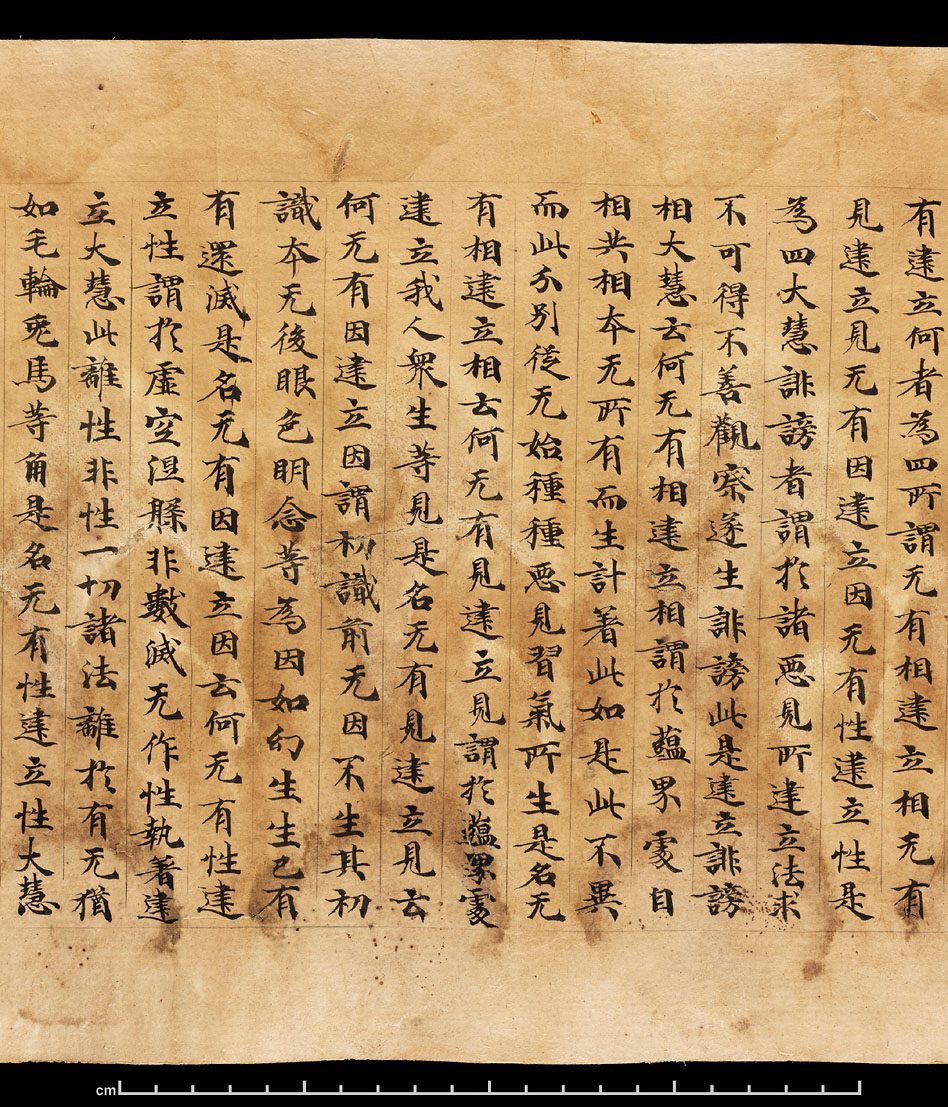 有建立何者為四所謂无有相建立相无有
見建立見无有因建立因无有性建立性是
為四大慧誹謗者謂於諸惡見所建立法求
不可得不善觀察遂生誹謗此是建立誹謗
相大慧云何无有相建立相謂於蘊界處自
相共相本无所有而生計著此如是此不異
而此分別從无始種種惡見習氣所生是名无
有相建立相云何无有見建立見謂於蘊界處
建立我人衆生等見是名无有見建立見云
何无有因建立因謂初識前无因不生其初
識本无後眼色明念等為因如幻生生已有
有還滅是名无有因建立因云何无有性建
立性謂於虛空涅槃非數滅无作性執著建
立大慧此離性非性一切諸法離於有无猶
如毛輪兎馬等角是名无有性建立性大慧
cm